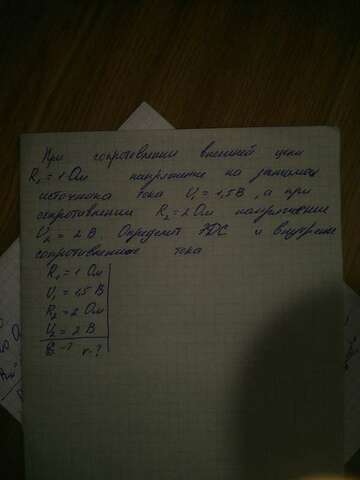 При сопротивлении внешней цепи
R₁ = 1 Ом напряжение на зажимах
источника тока U₁ = 1,5 В, а при
сопротивлении R₂ = 2 Ом напряжение
U₂ = 2 В. Определить ЭДС и внутренне
сопротивление тока
R₁ = 1 Ом
U₁ = 1,5 В
R₂ = 2 Ом
U₂ = 2 В
ε -? r-?